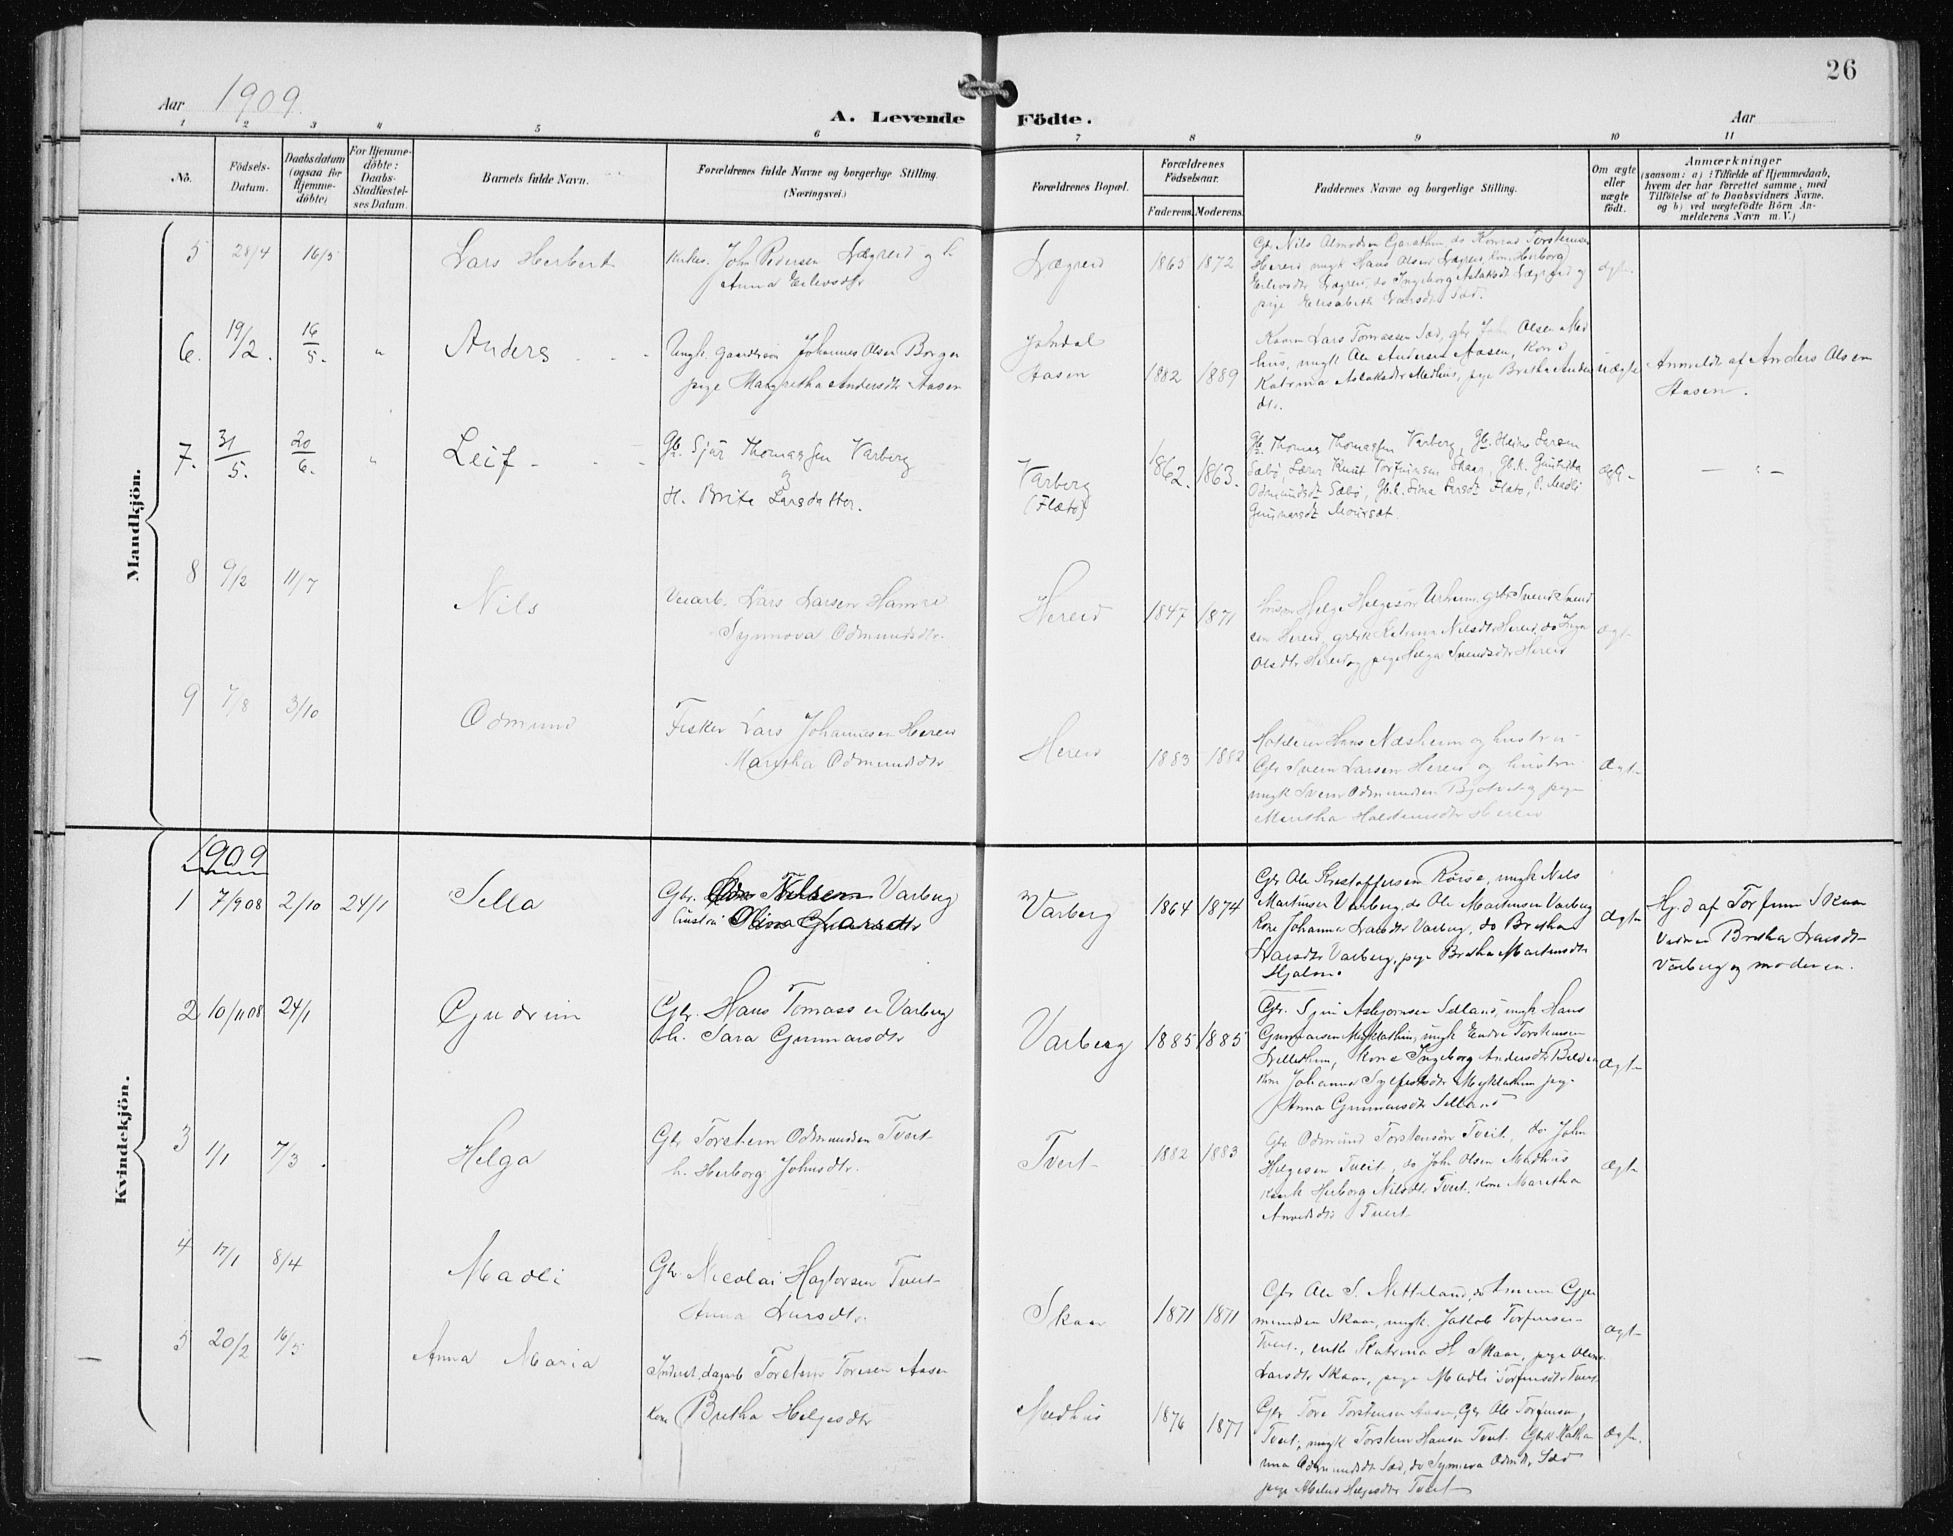 26
Aar 1909.
A. Levende Födte.
Aar
1 2 3 4 5 6 7 8 9 10 11
No.
Födsels-Datum.
Daabsdatum (ogsaa for Hjemme-döbte)
For Hjemme-döbte: Daabs-Stadfæstel-ses Datum.
Barnets fulde Navn.
Forældrenes fulde Navne og borgerlige Stilling. (Næringsvei.)
Forældrenes Bopæl.
Forældrenes Födselsaar.
Faderens. Moderens.
Faddernes Navne og borgerlige Stilling.
Om ægte eller uægte födt.
Anmærkninger
(saasom: a) i Tilfælde af Hjemmedaab, hvem der har forrettet samme, med Tilföielse af to Daabsvidners Navne, og b) ved uægtefödte Börn An-melderens Navn m. V.)
Mandkjön.
5 28/4 16/5 Lars Herbert
John Pedersen Lægreid og h.
Anna Eilevsdtr
Lægreid 1865 1872
Gbr Nils Almodsen Garathun, do Konrad Torsteinsen
Hereid ungk Hans Olsen Lægreid, Kone Herborg
Eilevsdtr Lægreid, do Ingeborg Aslaksdt Lægreid og
pige Elisabeth Larsdtr Sæd.
ægte.
6. 19/2. 16/5. " Anders
Ungk. gaardsøn Johannes Olsen Borge
pige Margretha Andersdtr Aasen
Jondal
Aasen 1882 1889
Kaarm Lars Tomassen Sæd, gbr John Olsen Med
hus, ungk Ole Andersen Aasen, Kone
Katrina Aslaksdtr Medhus, pige Bretha Anders
dtr.
uægte
Anmeldt af Anders Olsen
Aasen.
7. 31/5. 20/6. " Leif
Gb. Sjur Thomassen Varberg
&
H. Brita Larsdatter.
Varberg
(Flæto) 1862. 1863.
Gb. Thomas Thomassen Varberg, Gb. Heine Larsen
Sæbø, Lærer Knut Torfinnsen Skaar, Gb.k. Gunhilda
Odmundsdt Sæbø, Gb.k. Sima Larsdt Flæto, P. Madli
Gunnarsdt Moursæt.
ægte
— " —
8 9/2 11/7 Nils
Veiarb. Lars Larsen Hamre
Synnøva Odmundsdtr.
Hereid 1847 1871
Helge Helgesøn Urheim, gbr Svend Svend
sen Hereid, gbrk Katrina Nilsdtr Hereid, do Inga
Olsdtr Hereid og pige Helga Svendsdtr Hereid
ægt
9 7/8 3/10 Odmund
Fisker Lars Johannesen Hereid
Maritha Odmundsdtr
Hereid 1883 1882
Hans Næsheim og hustru
Gbr Svein Larsen Hereid og hustru
ungk Svein Odmundsen og pige
Maritha Halsteinsdtr Hereid
ægt
Kvindekjön.
1909
1 7/9 08 2/10 24/1 Sella
Gbr. Nilsen Varberg
hustru
Varberg 1864 1874
Gbr Ole Kristoffersen Röise, ungk Nils
Martinsen Varberg, do Ole Martinsen Varberg
Kone Johanna Larsdtr Varberg, do Bretha
Larsdtr Varberg, pige Bretha Martinsdtr
ægt
Hj.d af Torfinn Skaar
Vidner Bretha Larsdt
Varberg og moderen.
2 10/11 08 24/1 Gudrun
Gbr. Hans Tomassen Varberg
h. Sara Gunnarsdtr
Varberg 1885 1885
Gbr. Sjur Asbjørnsen Selland, ungk Hans
Gunnarsen Myklathun, ungk Endre Torsteinsen
Lillethun, Kone Ingeborg Andersdtr
Kone Johanna Sylfestsdtr Myklathun pige
Anna Gunnarsdtr Selland
ægt
3 1/1 7/3. Helga
Gbr Torstein Odmundsen Tveit
h. Herborg Johnsdtr.
Tveit 1882 1883
Gbr Odmund Torsteinsøn Tveit, do John
Helgesen Tveit, do John Olsen Medhus
Herborg Nilsdtr Tveit, Kone Maretha
Tveit
ægt
4 17/1 8/4 Madli
Gbr Nicolai Hagtorsen Tveit
Anna Larsdtr.
Skaar 1871 1871
Gbr Ole S. Netteland, do Gjer
mundsen Skaar, ungk. Jakob Torfinsen
Tveit, Katrina H Skaar, pige
Larsdtr Skaar, pige Madli Torfinsdtr Tveit
ægt
5 20/2 16/5 Anna Maria
Inderst, dagarb Torstein Toresen Aasen
Kone Bretha Helgesdtr
Medhus 1876 1877
Gbr Tore Torsteinsen Aasen, Gbr Ole Torfinsen
Tveit, ungk Torstein Hansen Tveit. Gbrk
Odmundsdt Sæd, do Synneva Sæd
pige Helgesdtr Tveit
ægte.